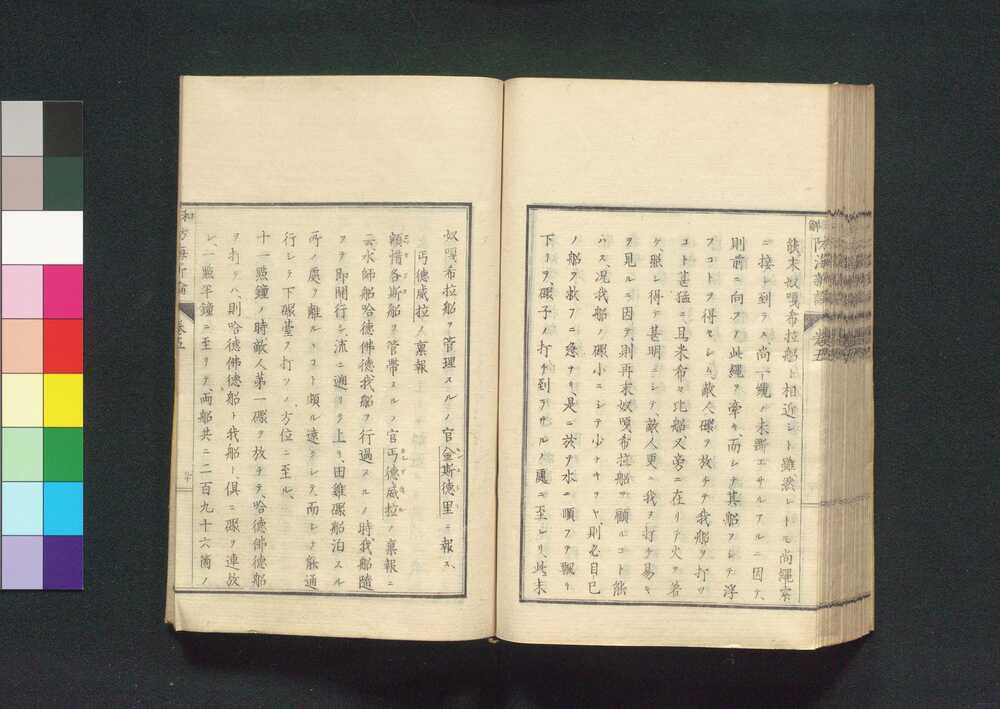 餓未奴嘎希拉船ト相近シト雖然レトモ尚繩索
ニ接ト到ラス、尚一纜ノ未斷エサルアルニ因テ、
則前ニ向フテ此繩ヲ牽キ而シテ其船ヲシテ浮
フコトヲ得セシム、敵人礮ヲ放チテ我船ヲ打ツ
コト甚猛ニ且米希々比船又旁ニ在リテ火ヲ吝
ケ、照シ得テ甚明ニシテ、敵人更ニ我ヲ打チ易キ
ヲ見ルニ因テ、則再未奴嘎希拉船ヲ顧ルコト能
ハス、况我船ノ礮小ニシテ少ナキヲヤ、則必自已
ノ船ヲ救フニ急ナリ、是ニ於テ水ニ順フテ飄ヒ
下リテ、礮子ノ打チ到ラサルノ處ニ至レリ、此未
奴嘎希拉船ヲ管理スルノ官金斯德里ニ報ス、
丏德威拉ノ稟報
額惜各斯船ヲ管帶スルノ官丏德威拉ノ稟報ニ
云水師船哈德佛德我船ヲ行過スルノ時、我船隨
ヲヲ即開行シ、流ニ遡リテ上リ、困難礮船泊スル
所ノ處ヲ離ルヽコト頗ル遠クシテ、而シテ能通
行シテ下礮臺ヲ打ツノ方位ニ至ル、
十一點鐘ノ時敵人第一礮ヲ放チテ、哈德佛德船
ヲ打タハ、則哈德佛德船ト我船ト、俱ニ礮ヲ連放
シ、一點半鐘ニ至リテ、兩船共ニ二百九十六箇ノ
卷五